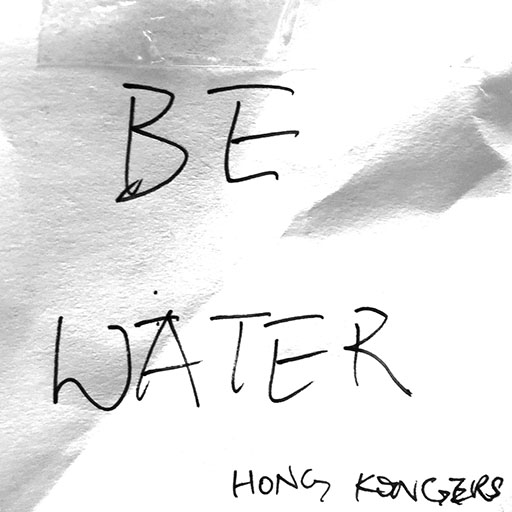 BE
WATER
HONG KONGERS